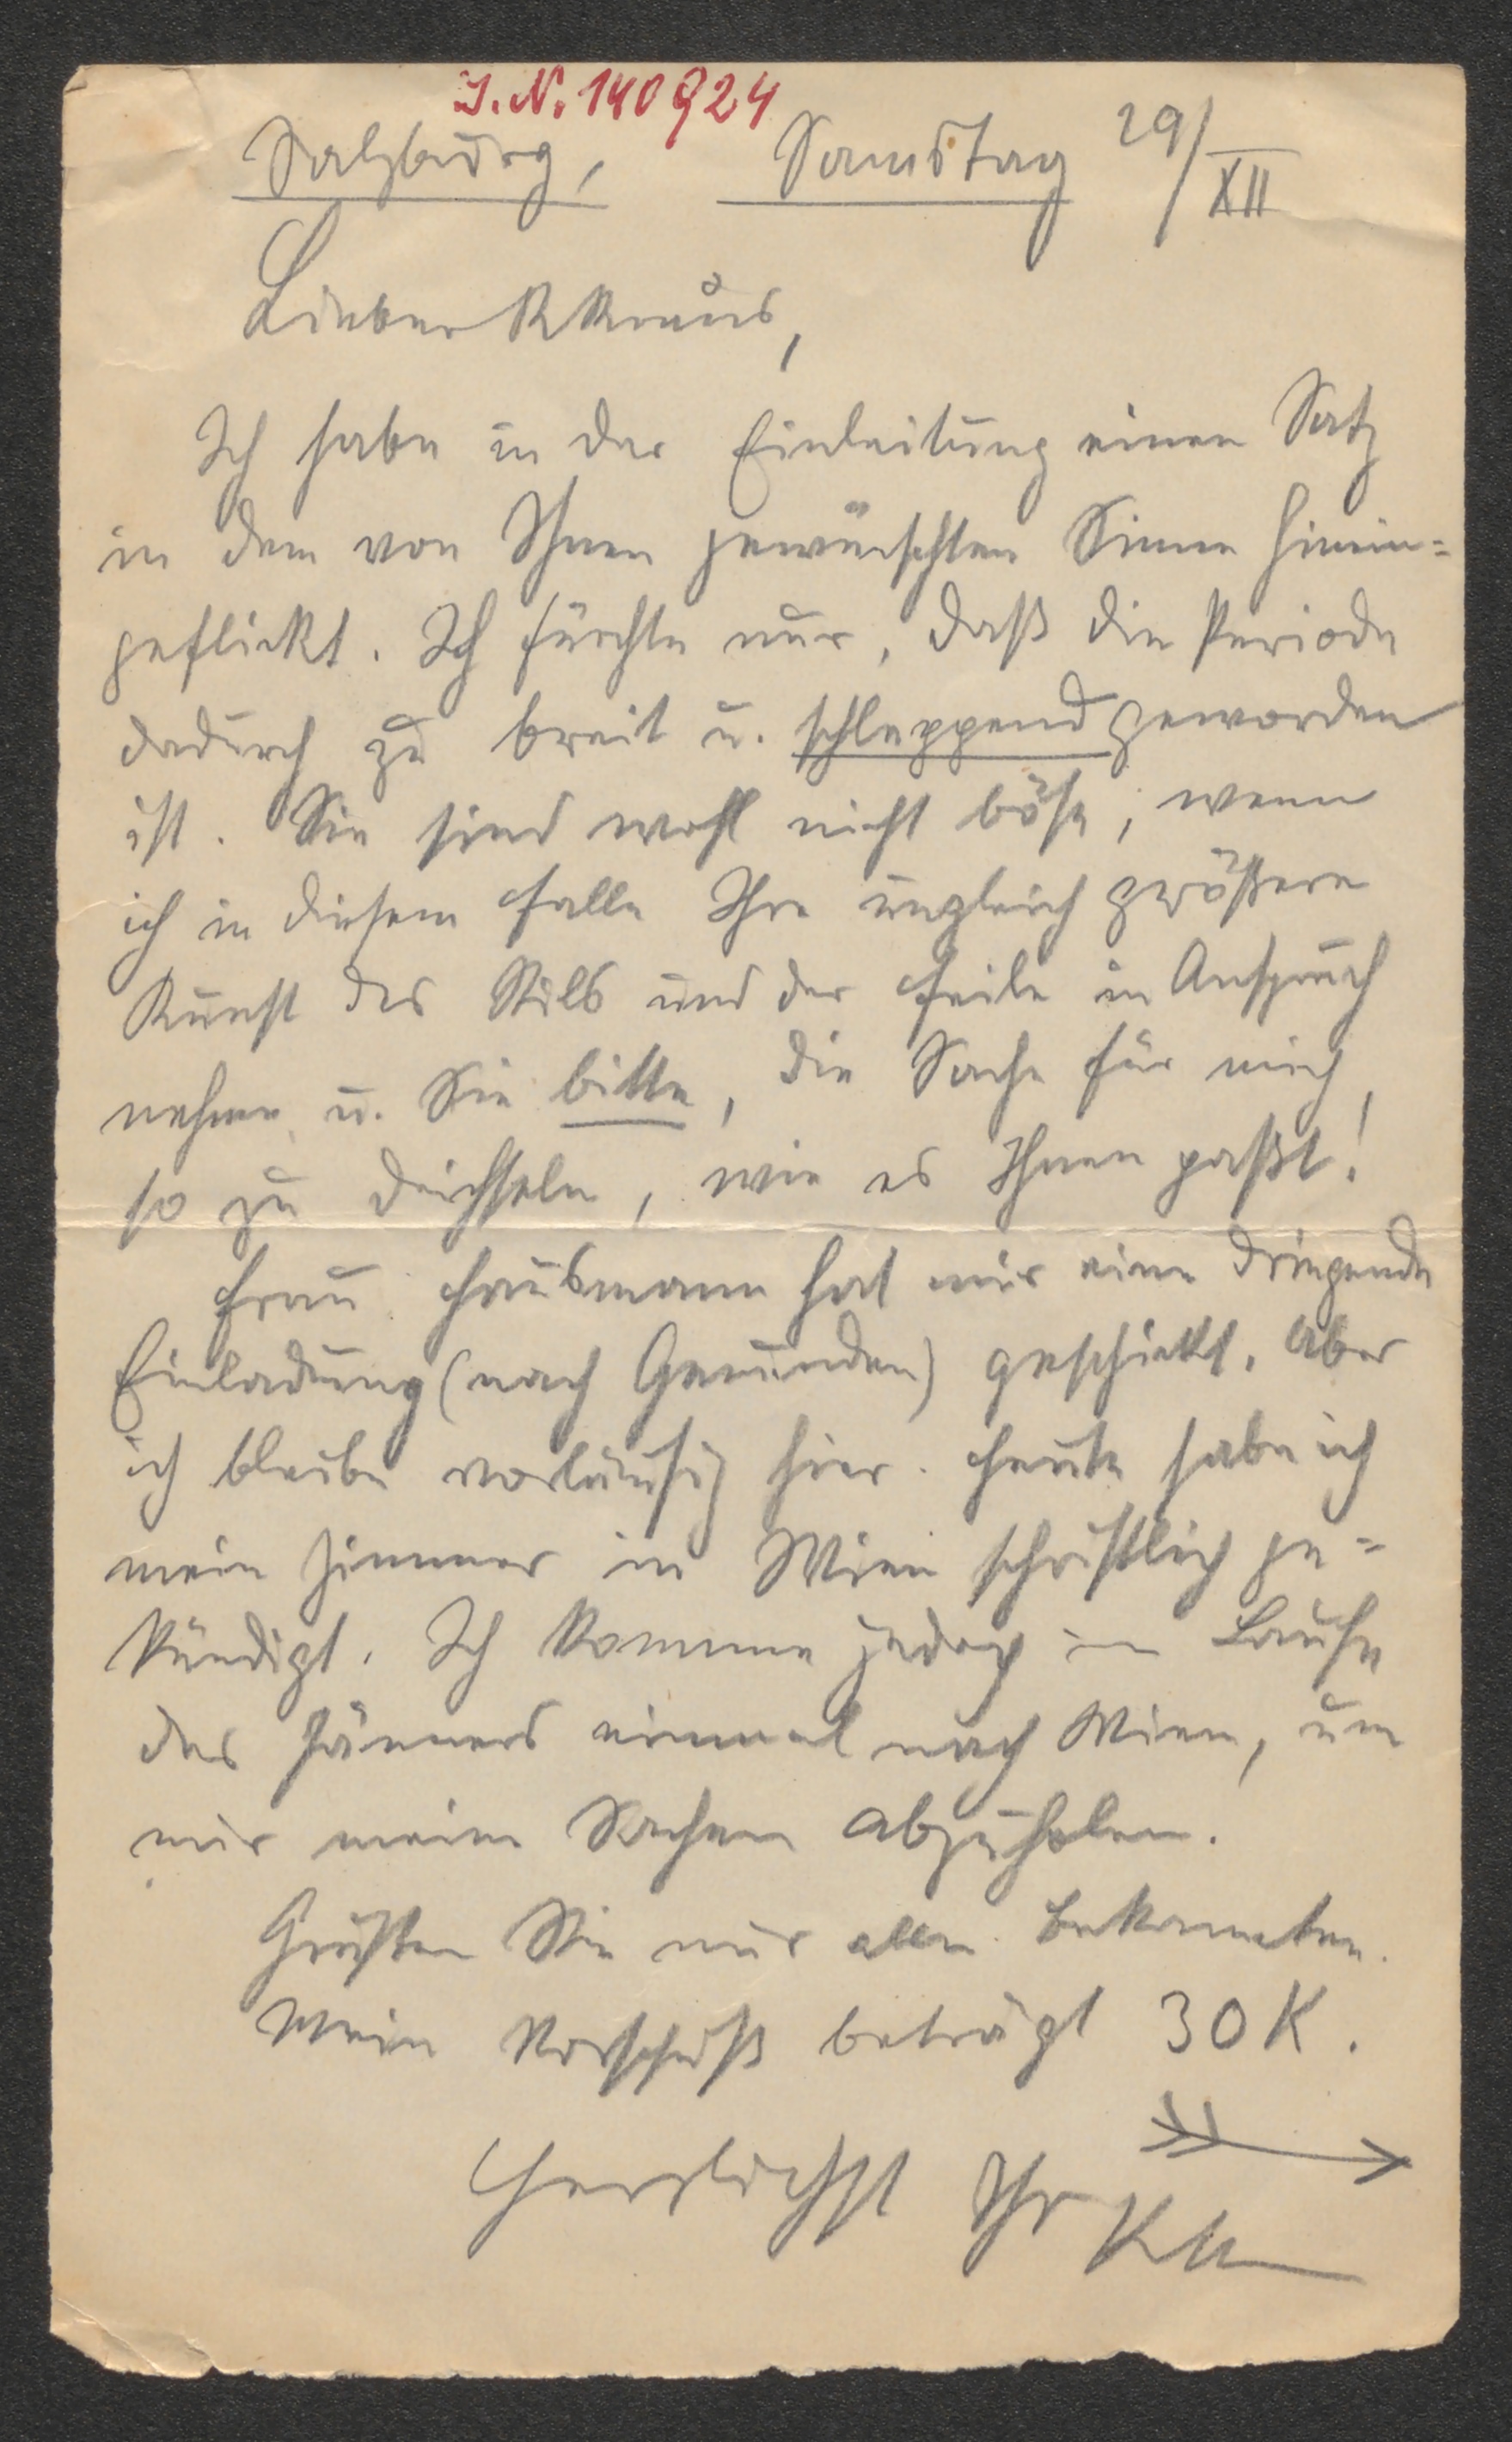 I. N. 140924
Salzburg, Samstag 29/XII
Lieber K Kraus,
Ich habe in der Einleitung einen Satz
in dem von Ihnen gewünschten Sinne hinein=
geflickt. Ich fürchte nur, daß die Periode
dadurch zu breit u. schleppend geworden
ist. Sie sind wohl nicht böse, wenn
ich in diesem Falle Ihre ungleich größere
Kunst des Stils und der Feile in Anspruch
nehme u. Sie bitte, die Sache für mich,
so zu deichseln, wie es Ihnen paßt!
Frau Hausmann hat mir eine dringende
Einladung (nach Gmunden) geschickt. Aber
ich bleibe vorläufig hier. Heute habe ich
mein Zimmer in Wien schriftlich ge=
kündigt. Ich komme jedoch im Laufe
des Jänners einmal nach Wien, um
mir meine Sachen abzuholen.
Grüßen Sie mir alle Bekannten.
Mein Vorschuß beträgt 30 K.
Herzlichst Ihr